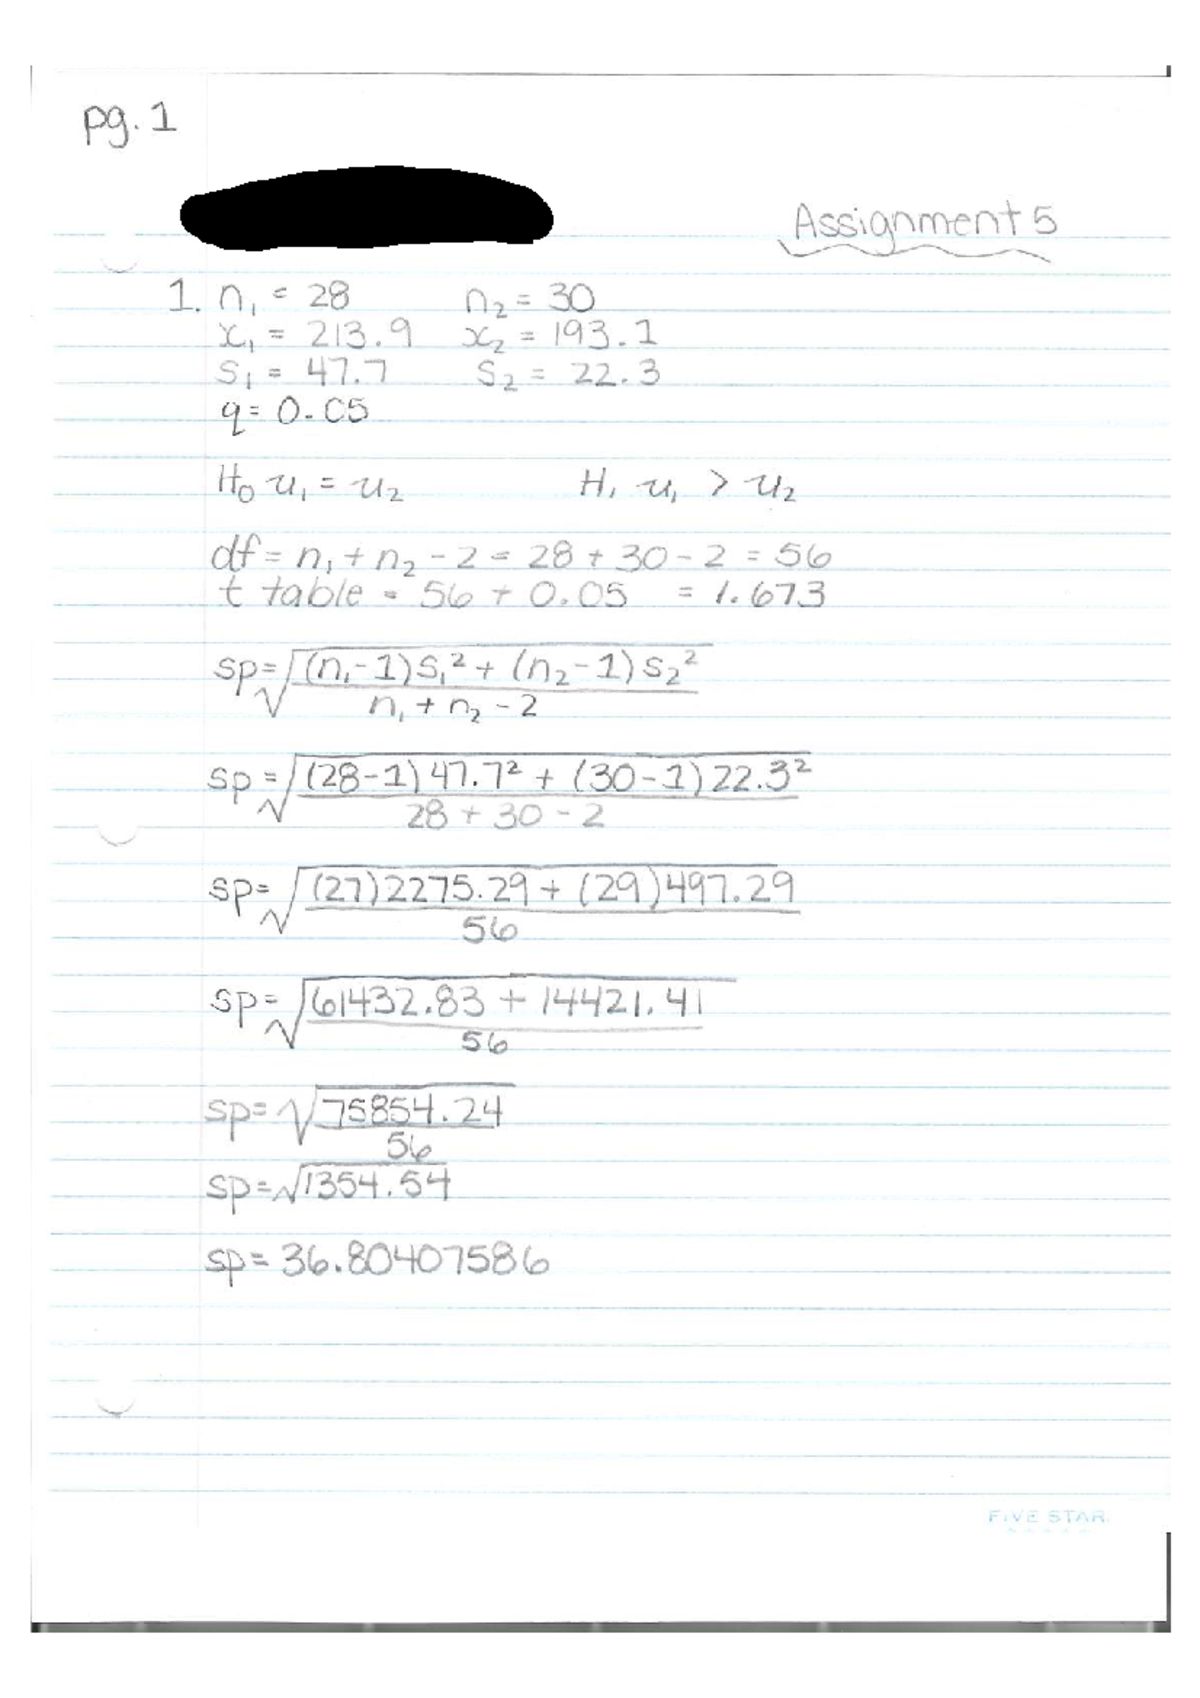 pg. 1
Assignment 5
1. n₁ = 28 n₂ = 30
x₁ = 213.9 x₂ = 193.1
S₁ = 47.7 S₂ = 22.3
q = 0.05
H₀ u₁ = u₂ H₁ u₁ > u₂
df = n₁ + n₂ - 2 = 28 + 30 - 2 = 56
t table = 56 + 0.05 = 1.673
sp = √(n₁-1)S₁² + (n₂-1)S₂²
n₁ + n₂ - 2
sp = √(28-1)47.7² + (30-1)22.3²
28 + 30 - 2
sp = √(27)2275.29 + (29)497.29
56
sp = √61432.83 + 14421.41
56
sp = √75854.24
56
sp = √1354.54
sp = 36.80407586
FIVE STAR